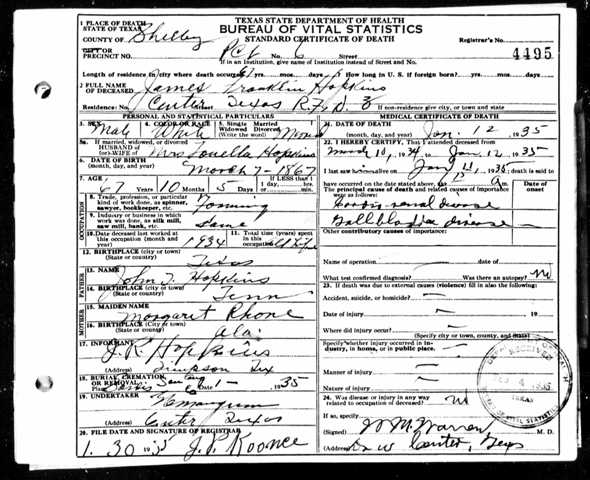 TEXAS STATE DEPARTMENT OF HEALTH
BUREAU OF VITAL STATISTICS
STANDARD CERTIFICATE OF DEATH
1 PLACE OF DEATH
STATE OF TEXAS
COUNTY OF Shelby
CITY OR
PRECINCT NO. Pct 6 Street
Registrar's No.
4495
If in an Institution, give name of Institution instead of Street and No.
Length of residence in city where death occurred 67 yrs. How long in U. S. if foreign born?
2 FULL NAME OF DECEASED James Franklin Hopkins
Residence: No. Center Street Texas R.F.D. 3 If non-residence give city, or town and state
PERSONAL AND STATISTICAL PARTICULARS
3 SEX Male
4 COLOR OR RACE White
5 Single Married Widowed Divorced
5a If married, widowed, or divorced
HUSBAND of
(or) WIFE of Mrs Louella Hopkins
6 DATE OF BIRTH
(month, day, and year) March 7 - 1867
7 AGE
67 Years 10 Months 5 Days
If LESS than
1 day, hrs. min.
OCCUPATION
8 Trade, profession, or particular kind of work done, as spinner, sawyer, bookkeeper, etc. Farming
9 Industry or business in which work was done, as silk mill, saw mill, bank, etc. Same
10 Date deceased last worked at this occupation (month and year) 1934
11 Total time (years) spent in this occupation
12 BIRTHPLACE (city or town)
(State or country) Texas
FATHER
13 NAME John T. Hopkins
14 BIRTHPLACE (city or town)
(State or country) Tenn
MOTHER
15 MAIDEN NAME Margaret Rhone
16 BIRTHPLACE (City or town)
(State or country) Ala.
17 INFORMANT J. R. Hopkins
(Address) Timpson Tex
18 BURIAL, CREMATION, OR REMOVAL
Place Date 1 - 1935
19 UNDERTAKER Mangum
(Address) Center Texas
20 FILE DATE AND SIGNATURE OF REGISTRAR
1. 30 1935 J. P. Koonce
MEDICAL CERTIFICATE OF DEATH
21 DATE OF DEATH
(month, day, and year) Jan. 12 1935
22 I HEREBY CERTIFY, That I attended deceased from
10, 1934, to Jan. 12 1935
I last saw alive on Jan 11 1935; death is said to
have occurred on the date stated above, at m.
The principal cause of death and related causes of importance were as follows:
Date of onset
Cardio renal disease
Gall bladder disease
Other contributory causes of importance:
Name of operation Date of
What test confirmed diagnosis? Was there an autopsy? No
23 If death was due to external causes (violence) fill in also the following:
Accident, suicide, or homicide?
Date of injury 19
Where did injury occur?
(Specify city or town, county, and State)
Specify whether injury occurred in industry, in home, or in public place.
Manner of injury
Nature of injury
24 Was disease or injury in any way related to occupation of deceased? No
If so, specify
(Signed) W M Warren M. D.
Center, Texas
1935
TEXAS
OF VITAL STATISTICS